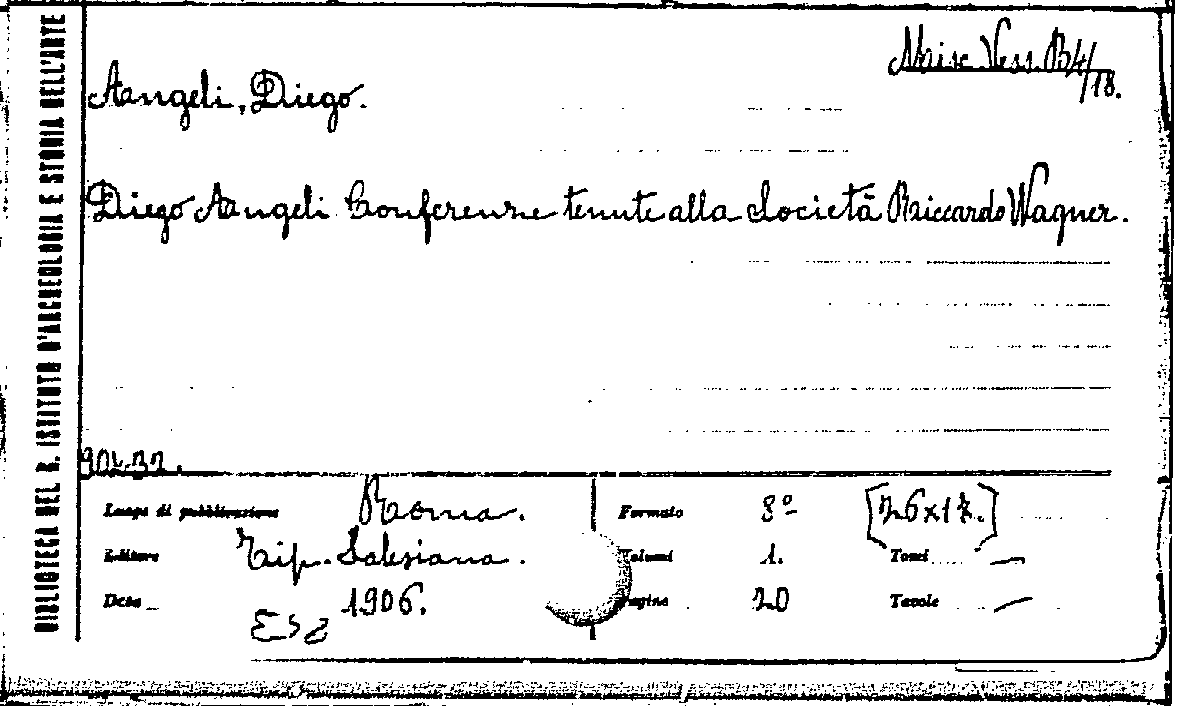 BIBLIOTECA DEL R. ISTITUTO D'ARCHEOLOGIA E STORIA DELL'ARTE
Misc. Vess. B4/18.
Angeli, Diego.
Diego Angeli Conferenze tenute alla Società Riccardo Wagner.
Luogo di pubblicazione Roma.
Editore Tip. Salesiana.
Data 1906.
Formato 8º [26x17.]
Volumi 1. Tomi —
Pagine 20 Tavole —